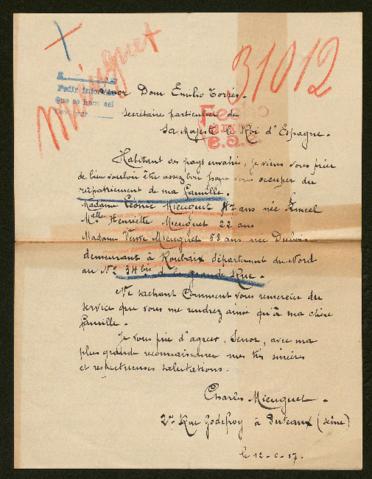 31012
Dom Emilio
secrétaire particulier de
Sa Majesté le Roi d'Espagne.
Habitant en pays envahi, je viens vous prier
de bien vouloir être assez bon pour vous occuper du
rapatriement de ma famille.
Madame Léonie ans née
Mlle Henriette 22 ans
Madame Vve 58 ans née
demeurant à Roubaix département du Nord
au No 34 bis Grande Rue.
Ne sachant comment vous remercier du
service que vous me rendrez ainsi qu'à ma chère
famille.
Je vous prie d'agréer, Señor, avec ma
plus grande reconnaissance mes très sincères
et respectueuses salutations.
Charles
Rue Godefroy à Puteaux (Seine)
le 12-6-17.